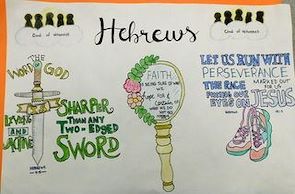 Hebrews
Cloud of Witnesses
Cloud of Witnesses
THE
WORD OF GOD
LIVING
AND
ACTIVE
SHARPER
THAN ANY
TWO-EDGED
SWORD
FAITH
BEING SURE OF WHAT
WE
HOPE FOR &
Certain
OF
WHAT WE
DO NOT
LET US RUN WITH
PERSEVERANCE
THE RACE
MARKED OUT
FOR US
FIXING OUR
EYES ON JESUS